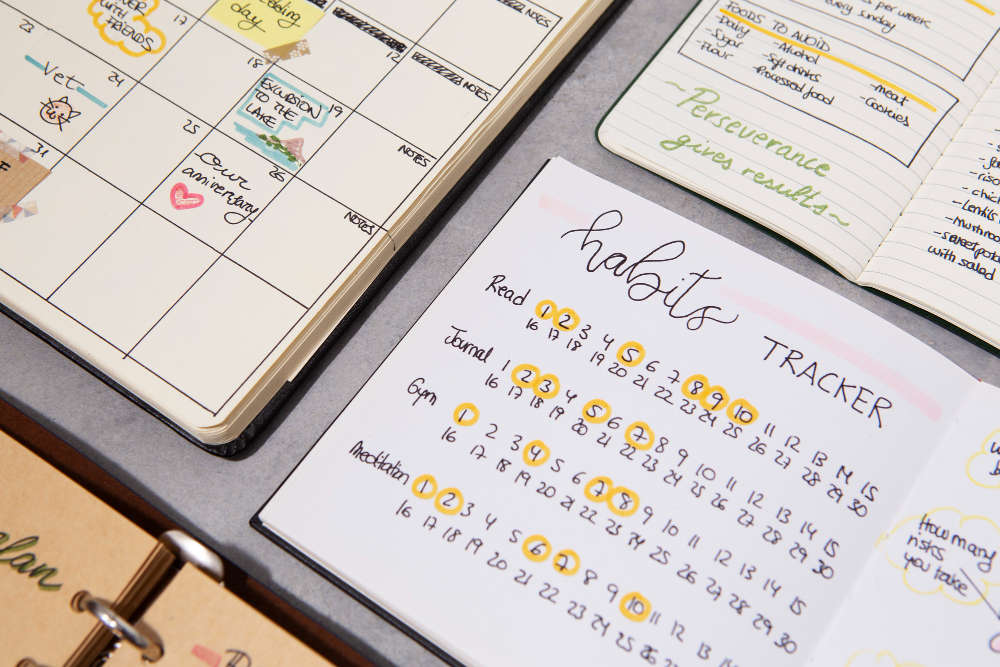 17
WITH
FRIENDS
day
NOTES
12
NOTES
23
18
Vet
24
EXCURSION
TO THE
LAKE
19
NOTES
31
25
26
Our
anniversary
NOTES
per week
every sunday
FOODS TO AVOID
-Daily -Alcohol -meat
-Sugar -Soft drinks -Cookies
-Flour -Processed food
~Perseverance
gives results~
-Lentils
-Mushroo
-sweet potato
with salad
habits
TRACKER
Read 1 2 3 4 5 6 7 8 9 10 11 12 13 14 15
16 17 18 19 20 21 22 23 24 25 26 27 28 29 30
Journal 1 2 3 4 5 6 7 8 9 10 11 12 13 14 15
16 17 18 19 20 21 22 23 24 25 26 27 28 29 30
Gym 1 2 3 4 5 6 7 8 9 10 11 12 13 14 15
16 17 18 19 20 21 22 23 24 25 26 27 28 29 30
Meditation 1 2 3 4 5 6 7 8 9 10 11 12 13
16 17 18 19 20 21 22 23 24 25 26
How many
risks
you take
plan